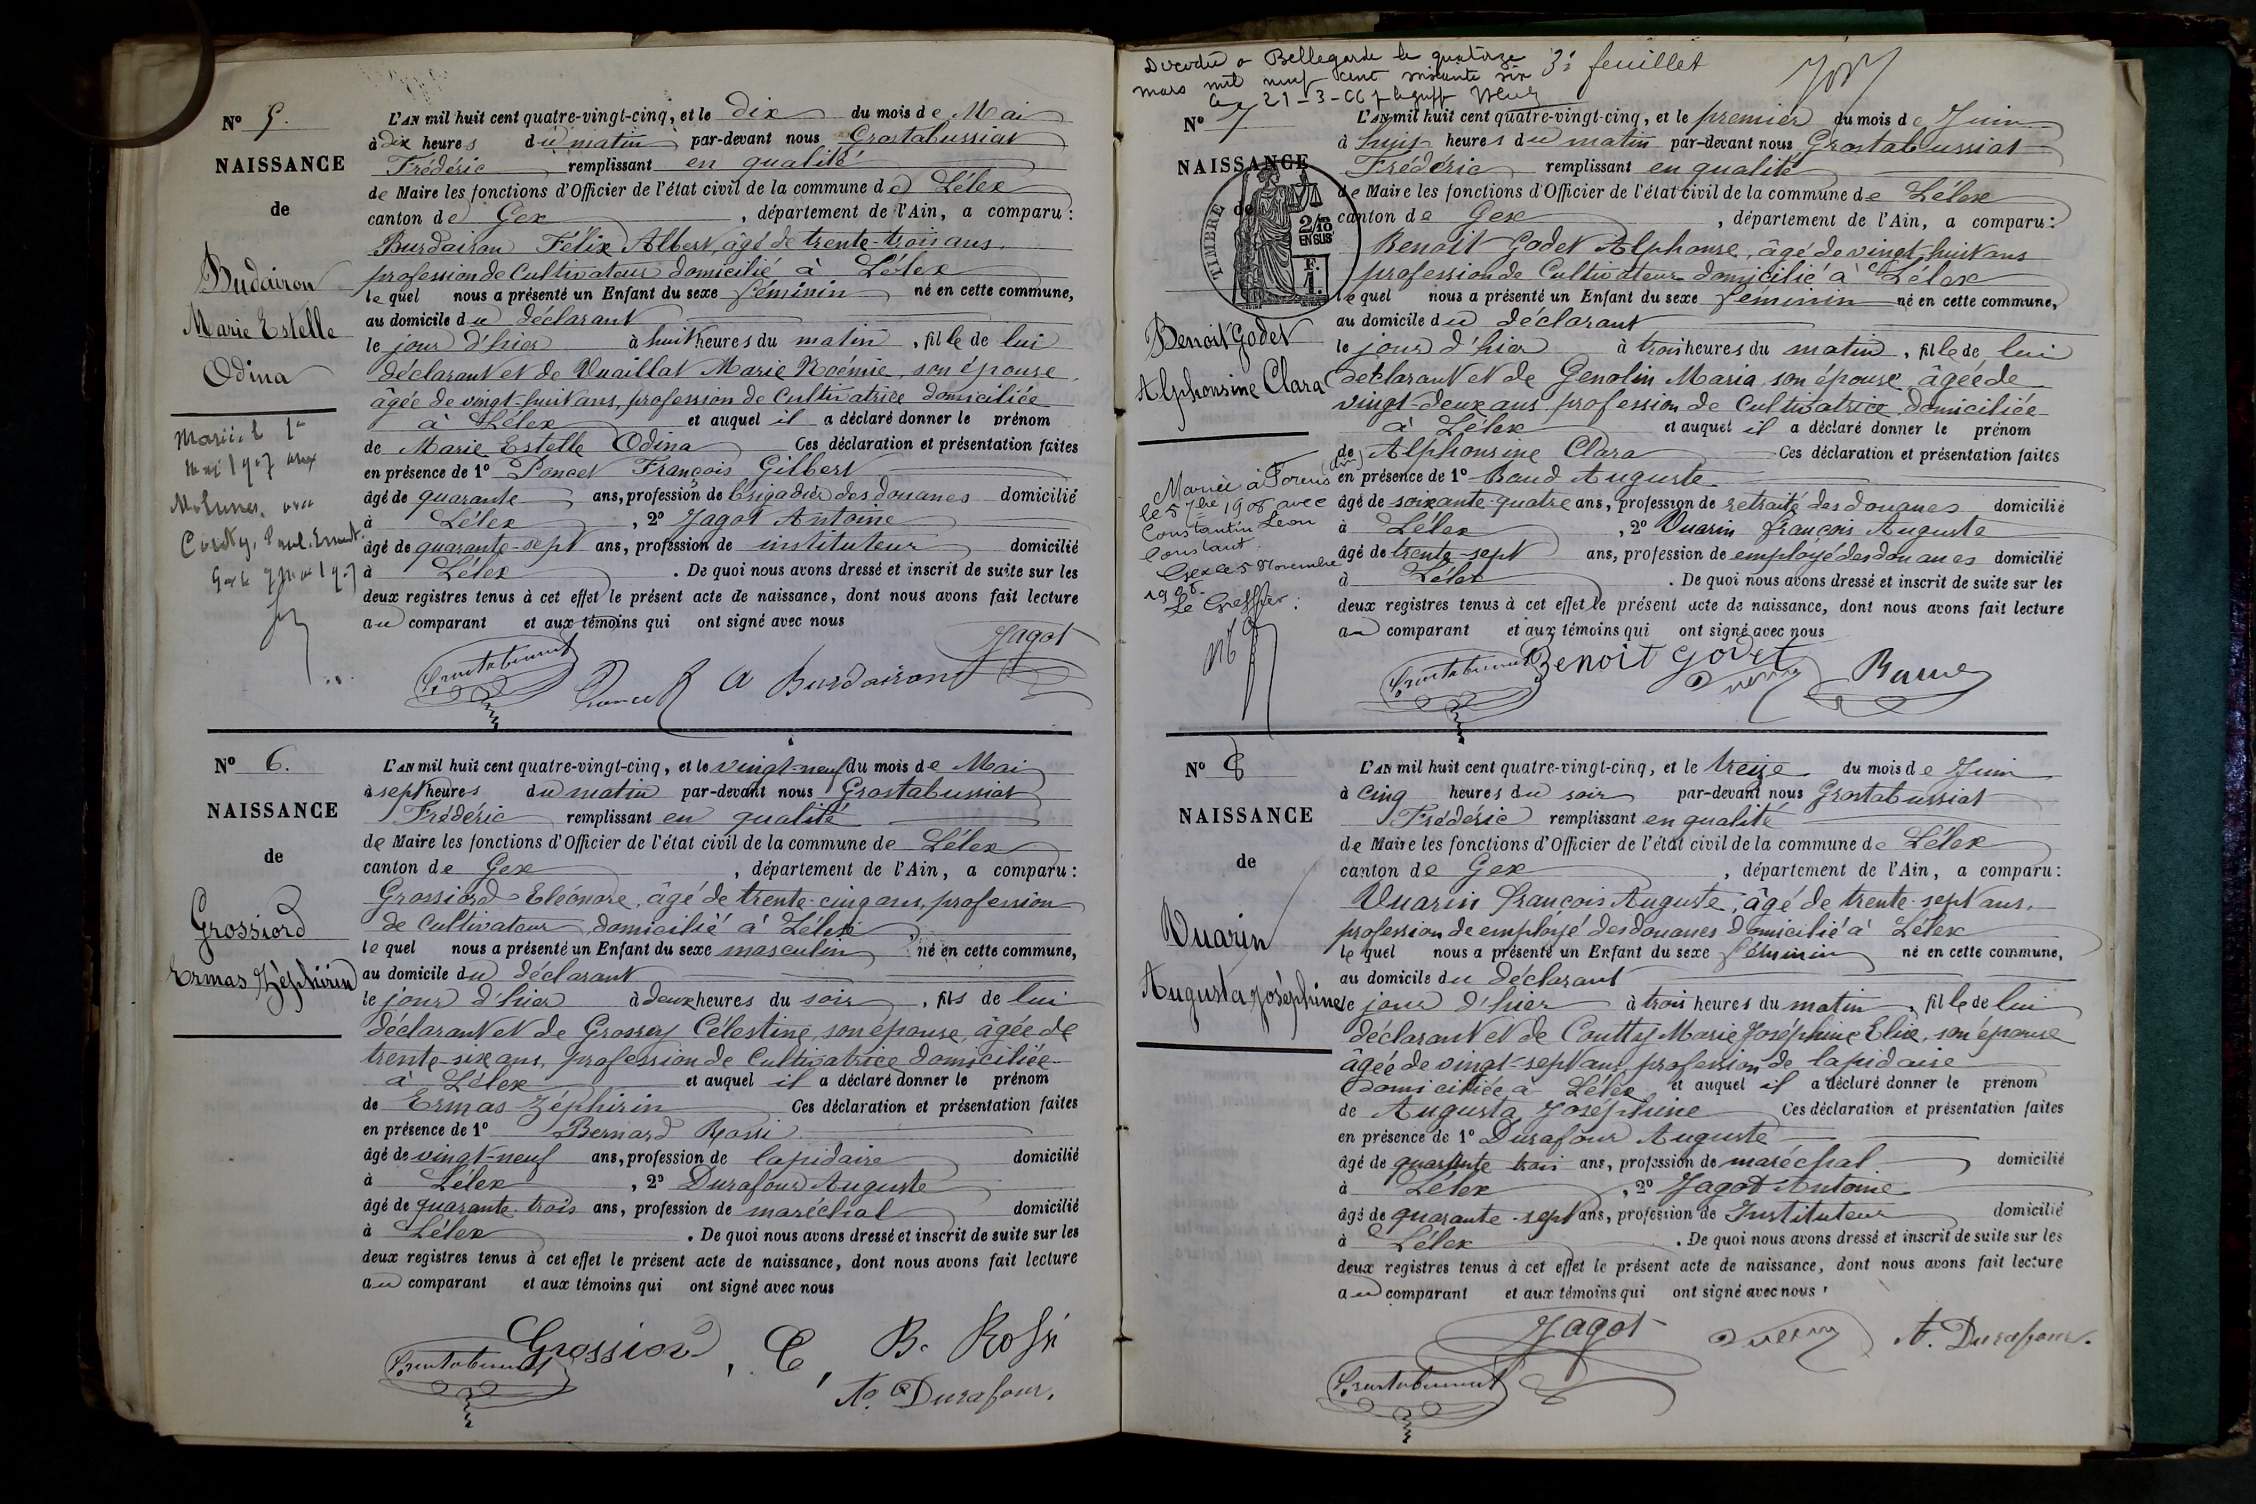 N° 5.
NAISSANCE
de
Budairon
Marie Estelle
Odina
Mariée le 1er
mai 1907 aux
Molunes, avec
Paul Ernest.
Gex le 7 mai 1907
L'AN mil huit cent quatre-vingt-cinq, et le dix du mois de Mai
à dix heures du matin par-devant nous Grostabussiat
Frédéric remplissant en qualité
de Maire les fonctions d'Officier de l'état civil de la commune de Lélex
canton de Gex, département de l'Ain, a comparu:
Burdairon Félix Albert, âgé de trente-trois ans,
profession de Cultivateur domicilié à Lélex
lequel nous a présenté un Enfant du sexe féminin né en cette commune,
au domicile du déclarant
le jour d'hier à huit heures du matin, fille de lui
déclarant et de Vuaillat Marie Noémie, son épouse,
âgée de vingt-huit ans, profession de Cultivatrice domiciliée
à Lélex et auquel il a déclaré donner le prénom
de Marie Estelle Odina Ces déclaration et présentation faites
en présence de 1° Poncet François Gilbert
âgé de quarante ans, profession de brigadier des douanes domicilié
à Lélex, 2° Jagot Antoine
âgé de quarante-sept ans, profession de instituteur domicilié
à Lélex. De quoi nous avons dressé et inscrit de suite sur les
deux registres tenus à cet effet le présent acte de naissance, dont nous avons fait lecture
au comparant et aux témoins qui ont signé avec nous
Jagot
Grostabussiat Poncet A Burdairon
N° 6.
NAISSANCE
de
Grossiord
Ermas Zéphirin
L'AN mil huit cent quatre-vingt-cinq, et le vingt-neuf du mois de Mai
à sept heures du matin par-devant nous Grostabussiat
Frédéric remplissant en qualité
de Maire les fonctions d'Officier de l'état civil de la commune de Lélex
canton de Gex, département de l'Ain, a comparu:
Grossiord Eléonore, âgé de trente-cinq ans, profession
de Cultivateur domicilié à Lélex
lequel nous a présenté un Enfant du sexe masculin né en cette commune,
au domicile du déclarant
le jour d'hier à deux heures du soir, fils de lui
déclarant et de Grossey Célestine, son épouse, âgée de
trente-six ans, profession de Cultivatrice domiciliée
à Lélex et auquel il a déclaré donner le prénom
de Ermas Zéphirin Ces déclaration et présentation faites
en présence de 1° Bernard Rossi
âgé de vingt-neuf ans, profession de lapidaire domicilié
à Lélex, 2° Durafour Auguste
âgé de quarante-trois ans, profession de maréchal domicilié
à Lélex. De quoi nous avons dressé et inscrit de suite sur les
deux registres tenus à cet effet le présent acte de naissance, dont nous avons fait lecture
au comparant et aux témoins qui ont signé avec nous
Grossiord, E, B. Rossi
Grostabussiat A. Durafour.
Décédée à Bellegarde le quatorze
mars mil neuf cent soixante six
le 21-3-66
3e feuillet
N° 7
NAISSANCE
de
TIMBRE
2/10
EN SUS
F.
1.
Benoit Godet
Alphonsine Clara
Mariée à Forens (Ain)
le 5 7bre 1908 avec
Constantin Léon
Constant.
Gex le 5 Novembre
1908.
Le Greffier:
L'AN mil huit cent quatre-vingt-cinq, et le premier du mois de Juin
à huit heures du matin par-devant nous Grostabussiat
Frédéric remplissant en qualité
de Maire les fonctions d'Officier de l'état civil de la commune de Lélex
canton de Gex, département de l'Ain, a comparu:
Benoit Godet Alphonse, âgé de vingt-huit ans
profession de Cultivateur domicilié à Lélex
lequel nous a présenté un Enfant du sexe féminin né en cette commune,
au domicile du déclarant
le jour d'hier à trois heures du matin, fille de lui
déclarant et de Genolin Maria son épouse, âgée de
vingt-deux ans profession de Cultivatrice domiciliée
à Lélex et auquel il a déclaré donner le prénom
de Alphonsine Clara Ces déclaration et présentation faites
en présence de 1° Baud Auguste
âgé de soixante-quatre ans, profession de retraité des douanes domicilié
à Lélex, 2° Vuarin François Auguste
âgé de trente-sept ans, profession de employé des douanes domicilié
à Lélex. De quoi nous avons dressé et inscrit de suite sur les
deux registres tenus à cet effet le présent acte de naissance, dont nous avons fait lecture
au comparant et aux témoins qui ont signé avec nous
Grostabussiat Benoit Godet
N° 8
NAISSANCE
de
Vuarin
Augusta Joséphine
L'AN mil huit cent quatre-vingt-cinq, et le treize du mois de Juin
à cinq heures du soir par-devant nous Grostabussiat
Frédéric remplissant en qualité
de Maire les fonctions d'Officier de l'état civil de la commune de Lélex
canton de Gex, département de l'Ain, a comparu:
Vuarin François Auguste, âgé de trente-sept ans,
profession de employé des douanes domicilié à Lélex
lequel nous a présenté un Enfant du sexe féminin né en cette commune,
au domicile du déclarant
le jour d'hier à trois heures du matin, fille de lui
déclarant et de Coutty Marie Joséphine Elise, son épouse
âgée de vingt-sept ans, profession de lapidaire
domiciliée à Lélex et auquel il a déclaré donner le prénom
de Augusta Joséphine Ces déclaration et présentation faites
en présence de 1° Durafour Auguste
âgé de quarante trois ans, profession de maréchal domicilié
à Lélex, 2° Jagot Antoine
âgé de quarante-sept ans, profession de Instituteur domicilié
à Lélex. De quoi nous avons dressé et inscrit de suite sur les
deux registres tenus à cet effet le présent acte de naissance, dont nous avons fait lecture
au comparant et aux témoins qui ont signé avec nous
Jagot A. Durafour.
Grostabussiat